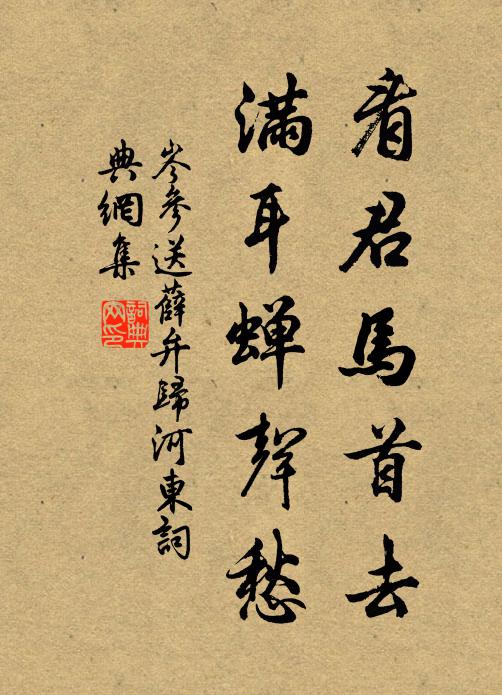 看君馬首去
滿耳蟬聲愁
岑參送薛弁歸河東詞
典網集
詞典网印